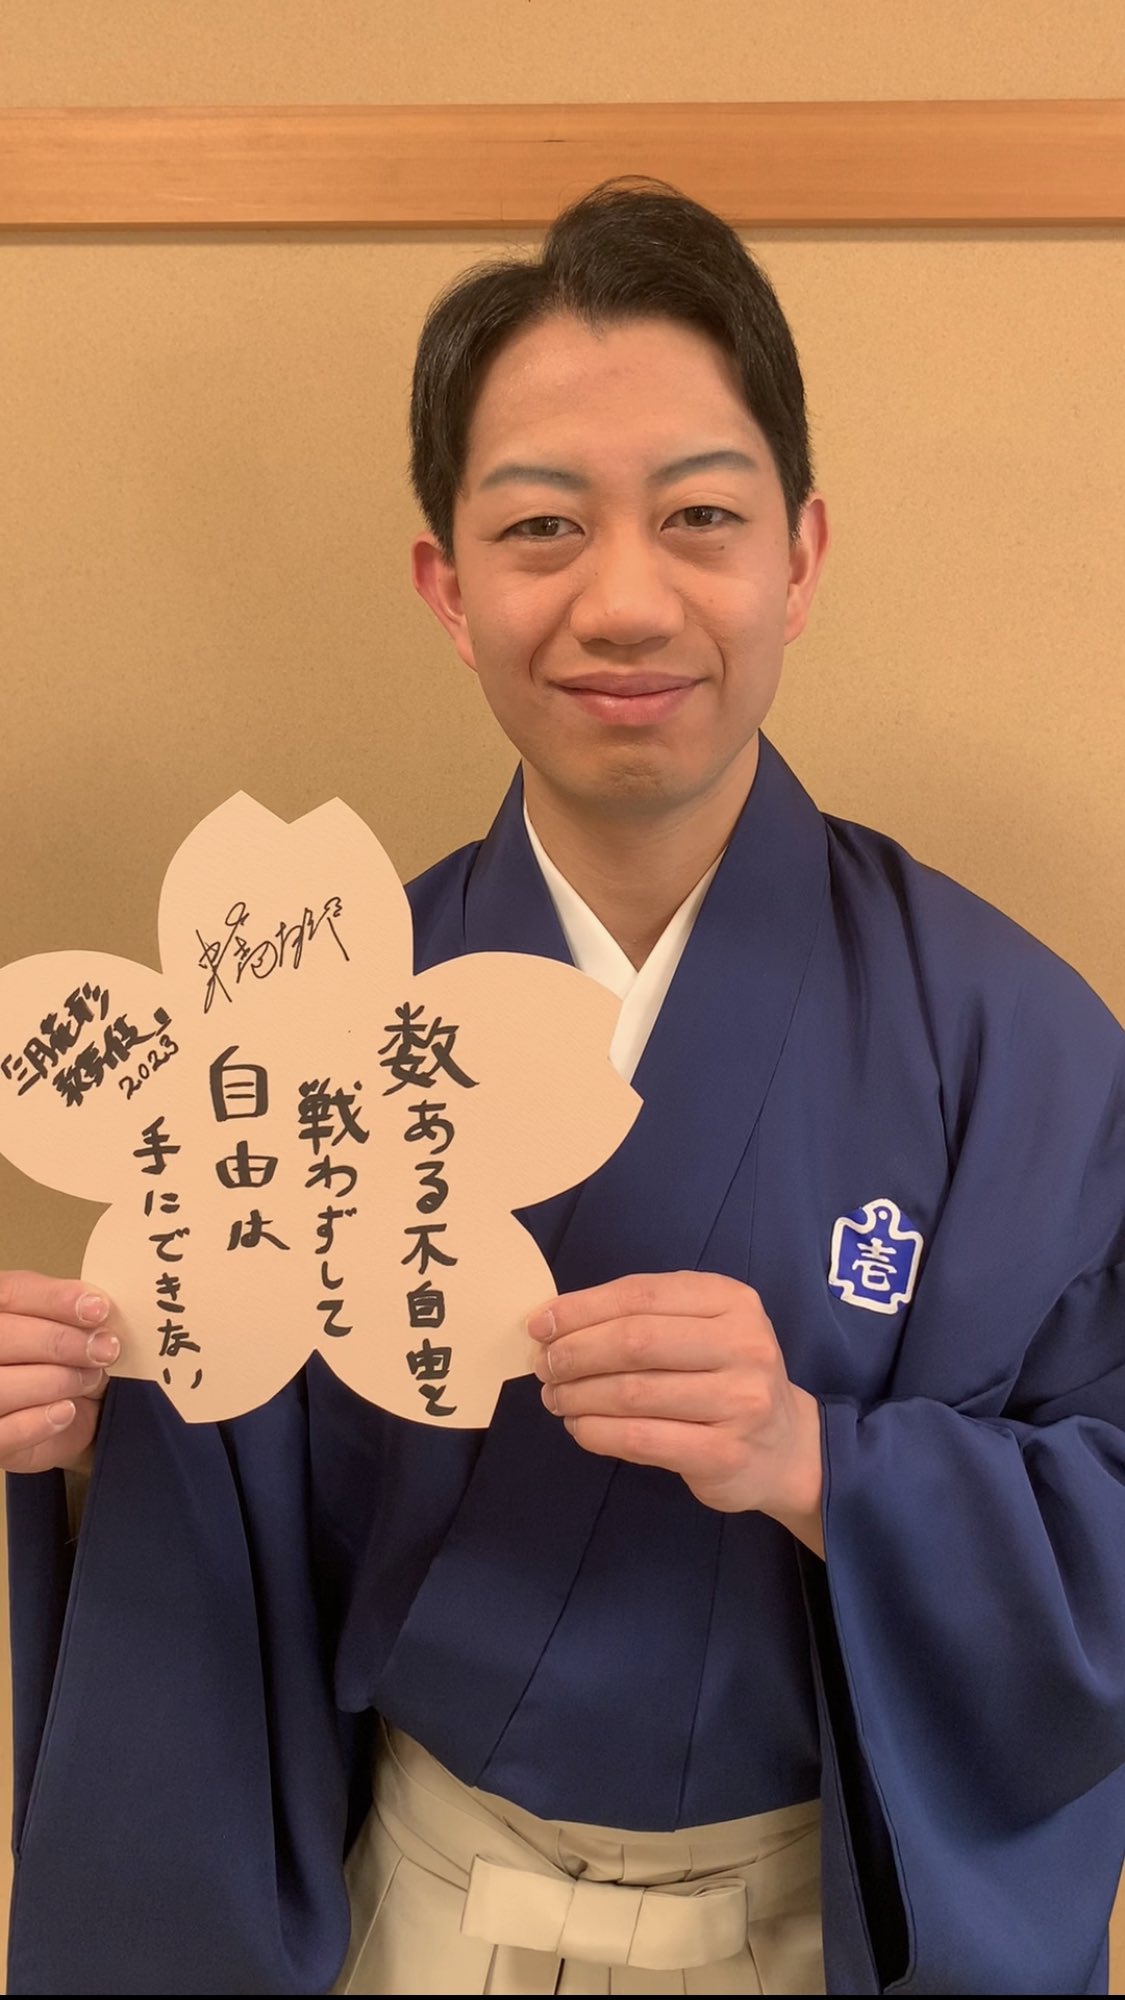 数ある不自由と
戦わずして
自由は
手にできない
「三月花形
歌舞伎」
2023
壱